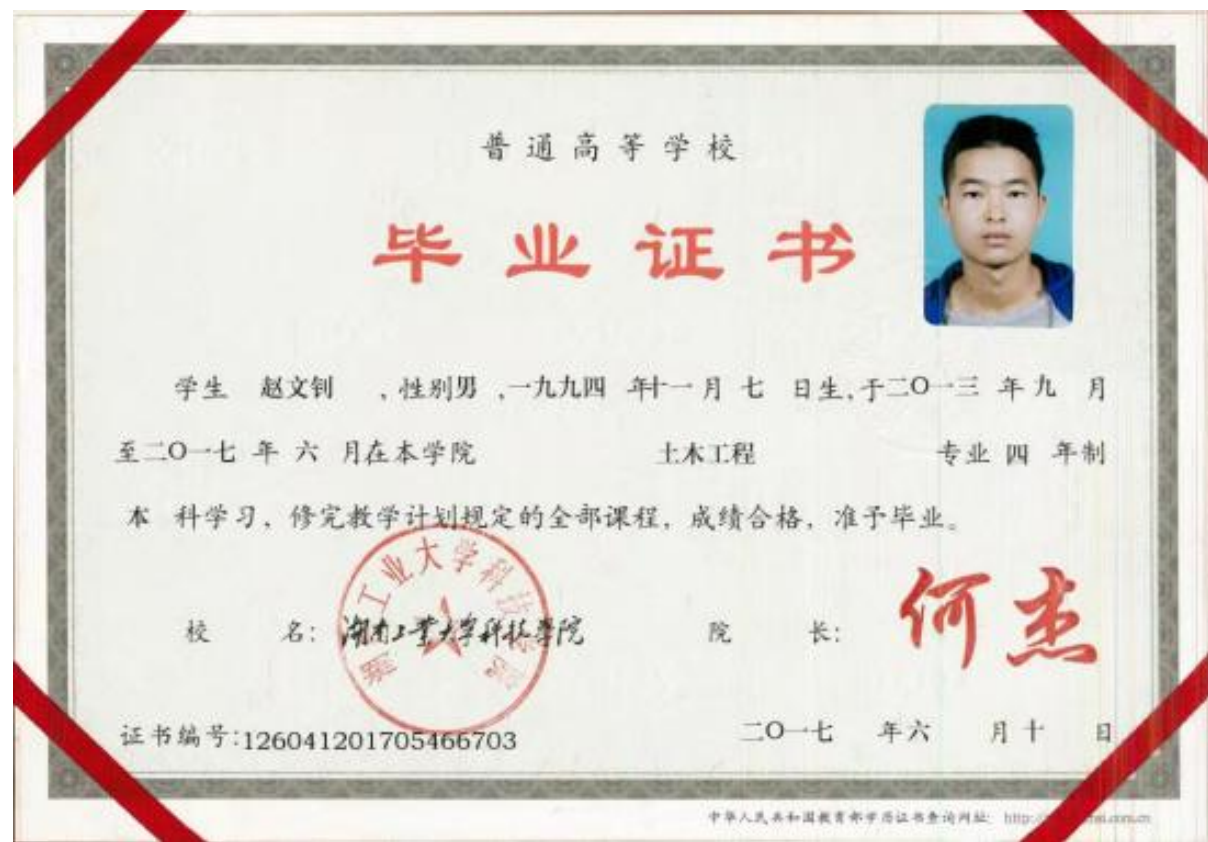 普通高等学校
毕业证书
学生 赵文钊 ，性别男 ，一九九四 年十一月 七 日生，于二〇一三 年九 月
至二〇一七 年 六 月在本学院 土木工程 专业 四 年制
本 科学习，修完教学计划规定的全部课程，成绩合格，准予毕业。
校 名：湖南工业大学科技学院 院 长：何杰
湖南工业大学科技学院
证书编号：126041201705466703 二〇一七 年六 月十 日
中华人民共和国教育部学历证书查询网址： http://